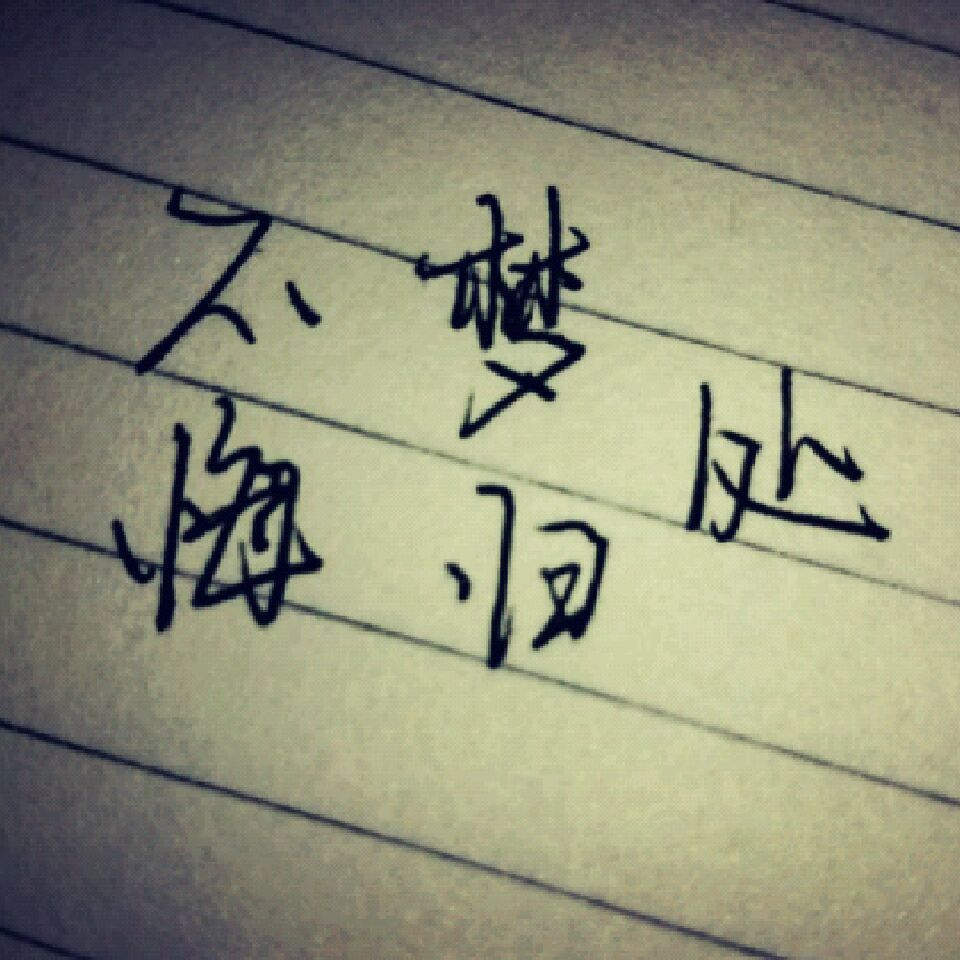 不悔
梦归
处